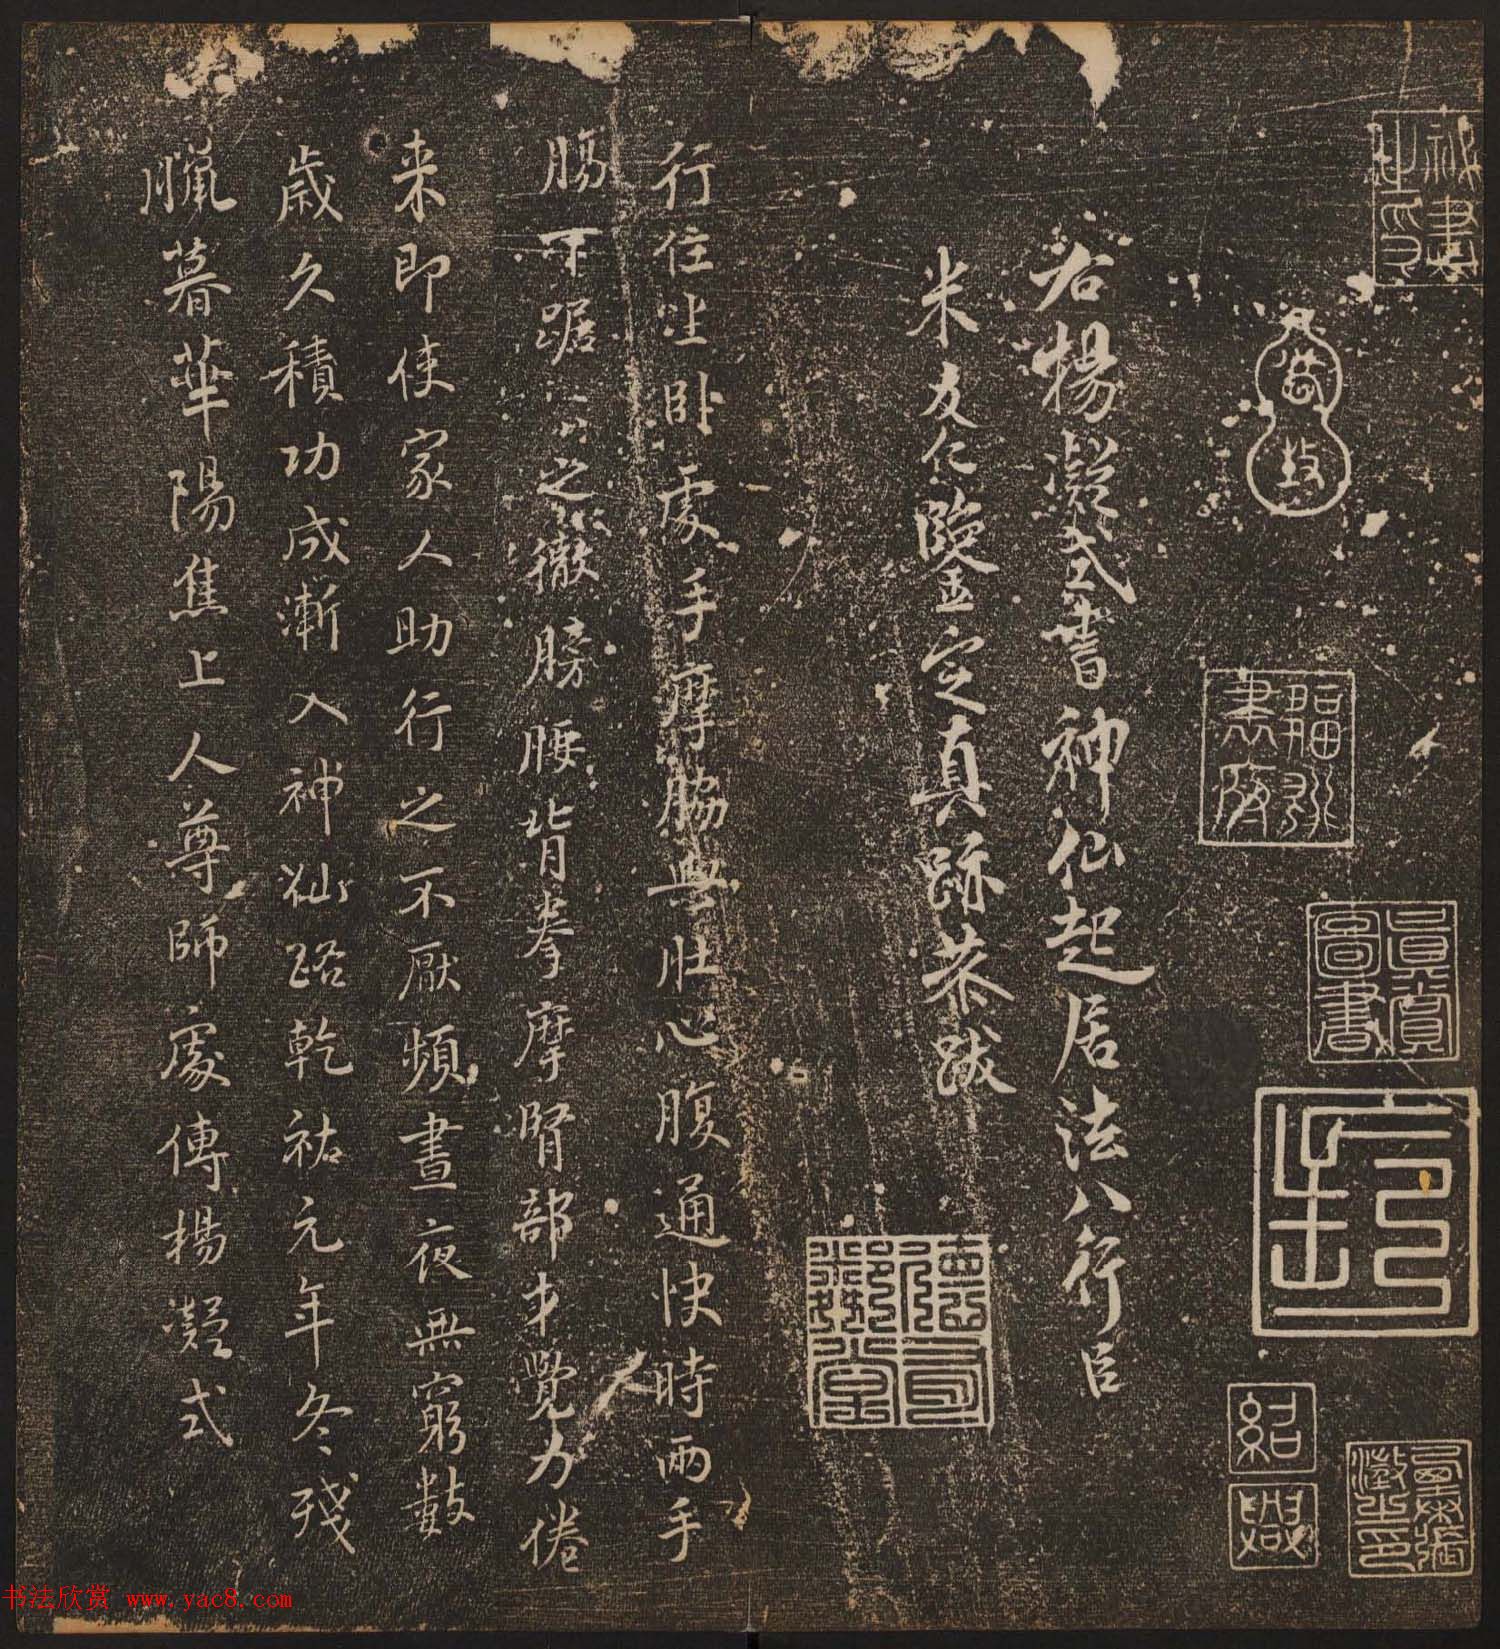 紹興
右楊凝式書神仙起居法八行臣
米友仁鑒定真跡恭跋
行住坐卧處手摩脇與肚心腹通快時兩手
腸下踞〻之徹膀腰背拳摩腎部才覺力倦
来即使家人助行之不厭頻晝夜無窮數
歲久積功成漸入神仙路乾祐元年冬殘
臘暮華陽焦上人尊師處傳楊凝式
书法欣赏 www.yac8.com